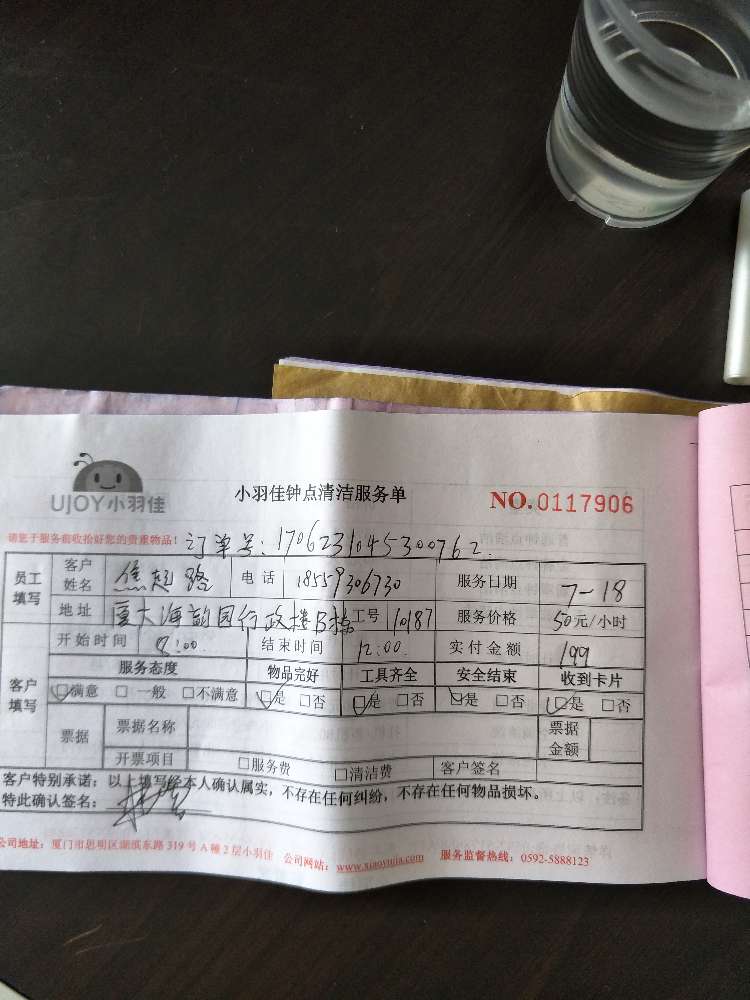 UJOY小羽佳
小羽佳钟点清洁服务单
NO.0117906
请您于服务前收拾好您的贵重物品！ 订单号：170623104530076 2
员工填写 客户姓名 焦超路 电话 18559306730 服务日期 7-18
地址 厦大海韵园行政楼B栋 工号 10187 服务价格 50元/小时
开始时间 8:00 结束时间 12:00 实付金额 199
客户填写 服务态度 物品完好 工具齐全 安全结束 收到卡片
☑满意 □一般 □不满意 ☑是 □否 ☑是 □否 ☑是 □否 ☑是 □否
票据 票据名称 票据金额
开票项目 □服务费 □清洁费 客户签名
客户特别承诺：以上填写经本人确认属实，不存在任何纠纷，不存在任何物品损坏。
特此确认签名：
公司地址：厦门市思明区湖滨东路319号A幢2层小羽佳 公司网站：www.xiaoyujia.com 服务监督热线：0592-5888123